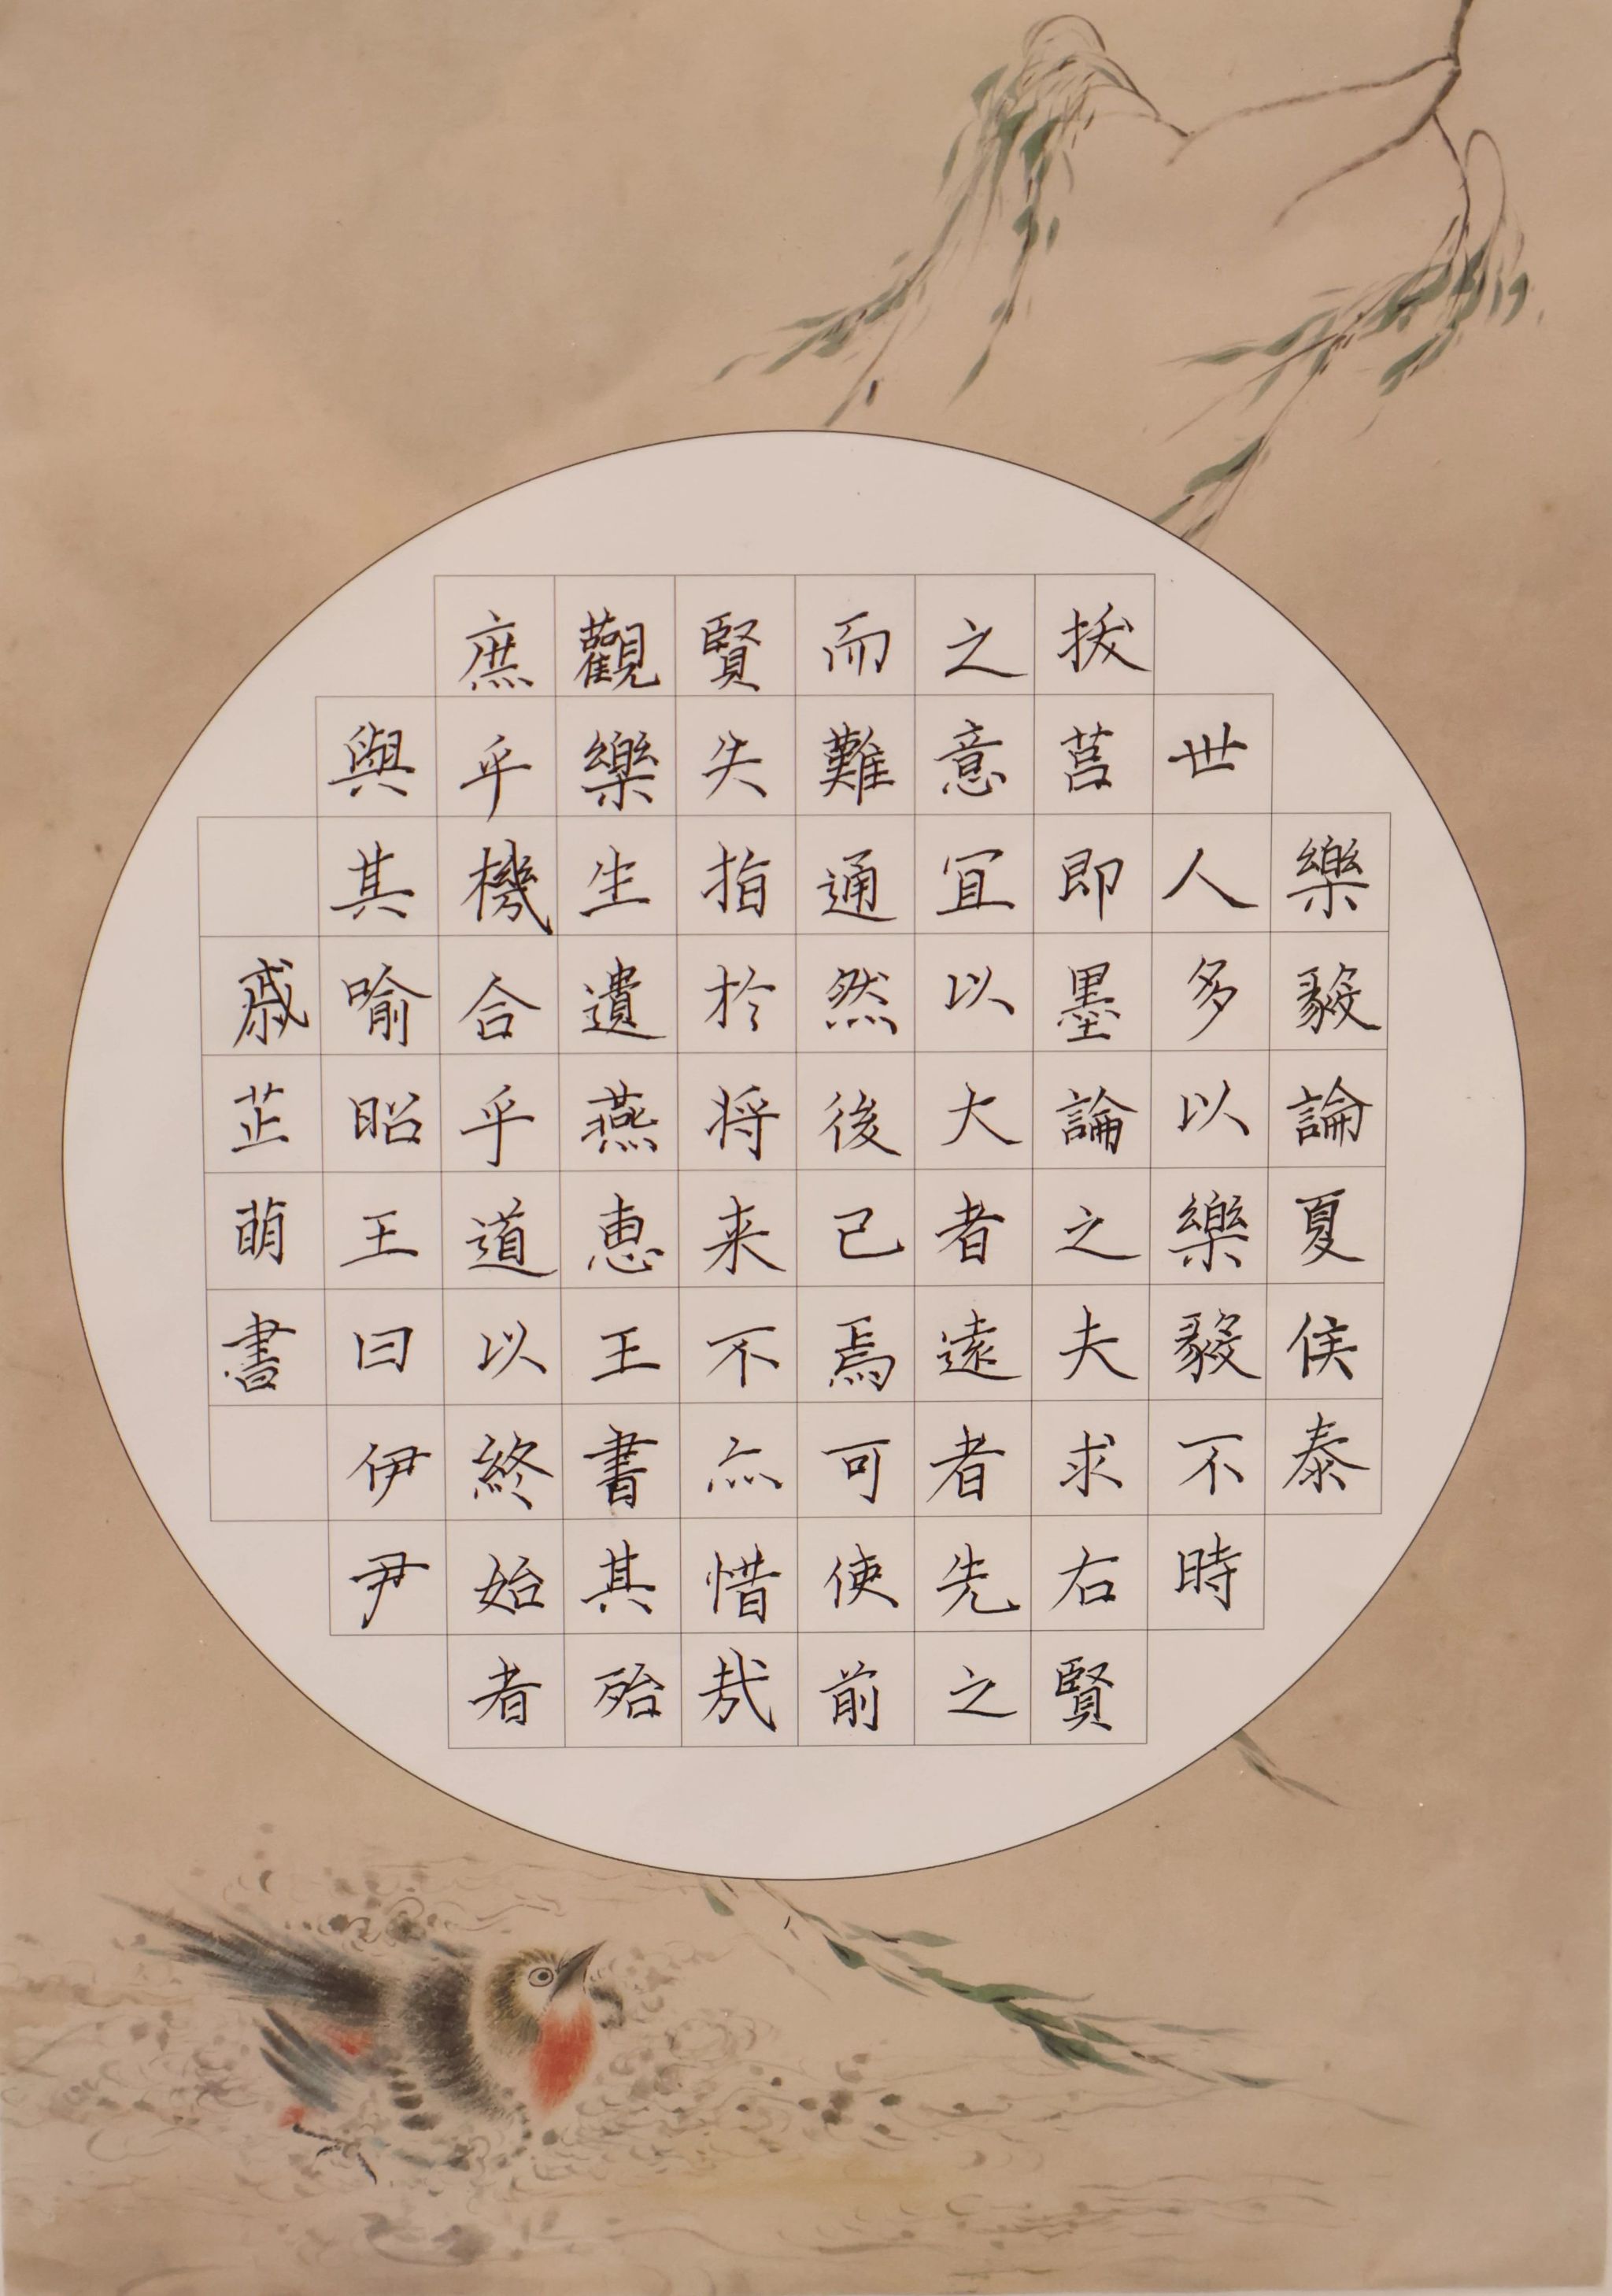 樂毅論夏侯泰
世人多以樂毅不時
拔莒即墨論之夫求右賢
之意宜以大者遠者先之
而難通然後已焉可使前
賢失指於将来不亦惜㢤
觀樂生遺燕惠王書其殆
庶乎機合乎道以終始者
與其喻昭王曰伊尹
戚芷萌書